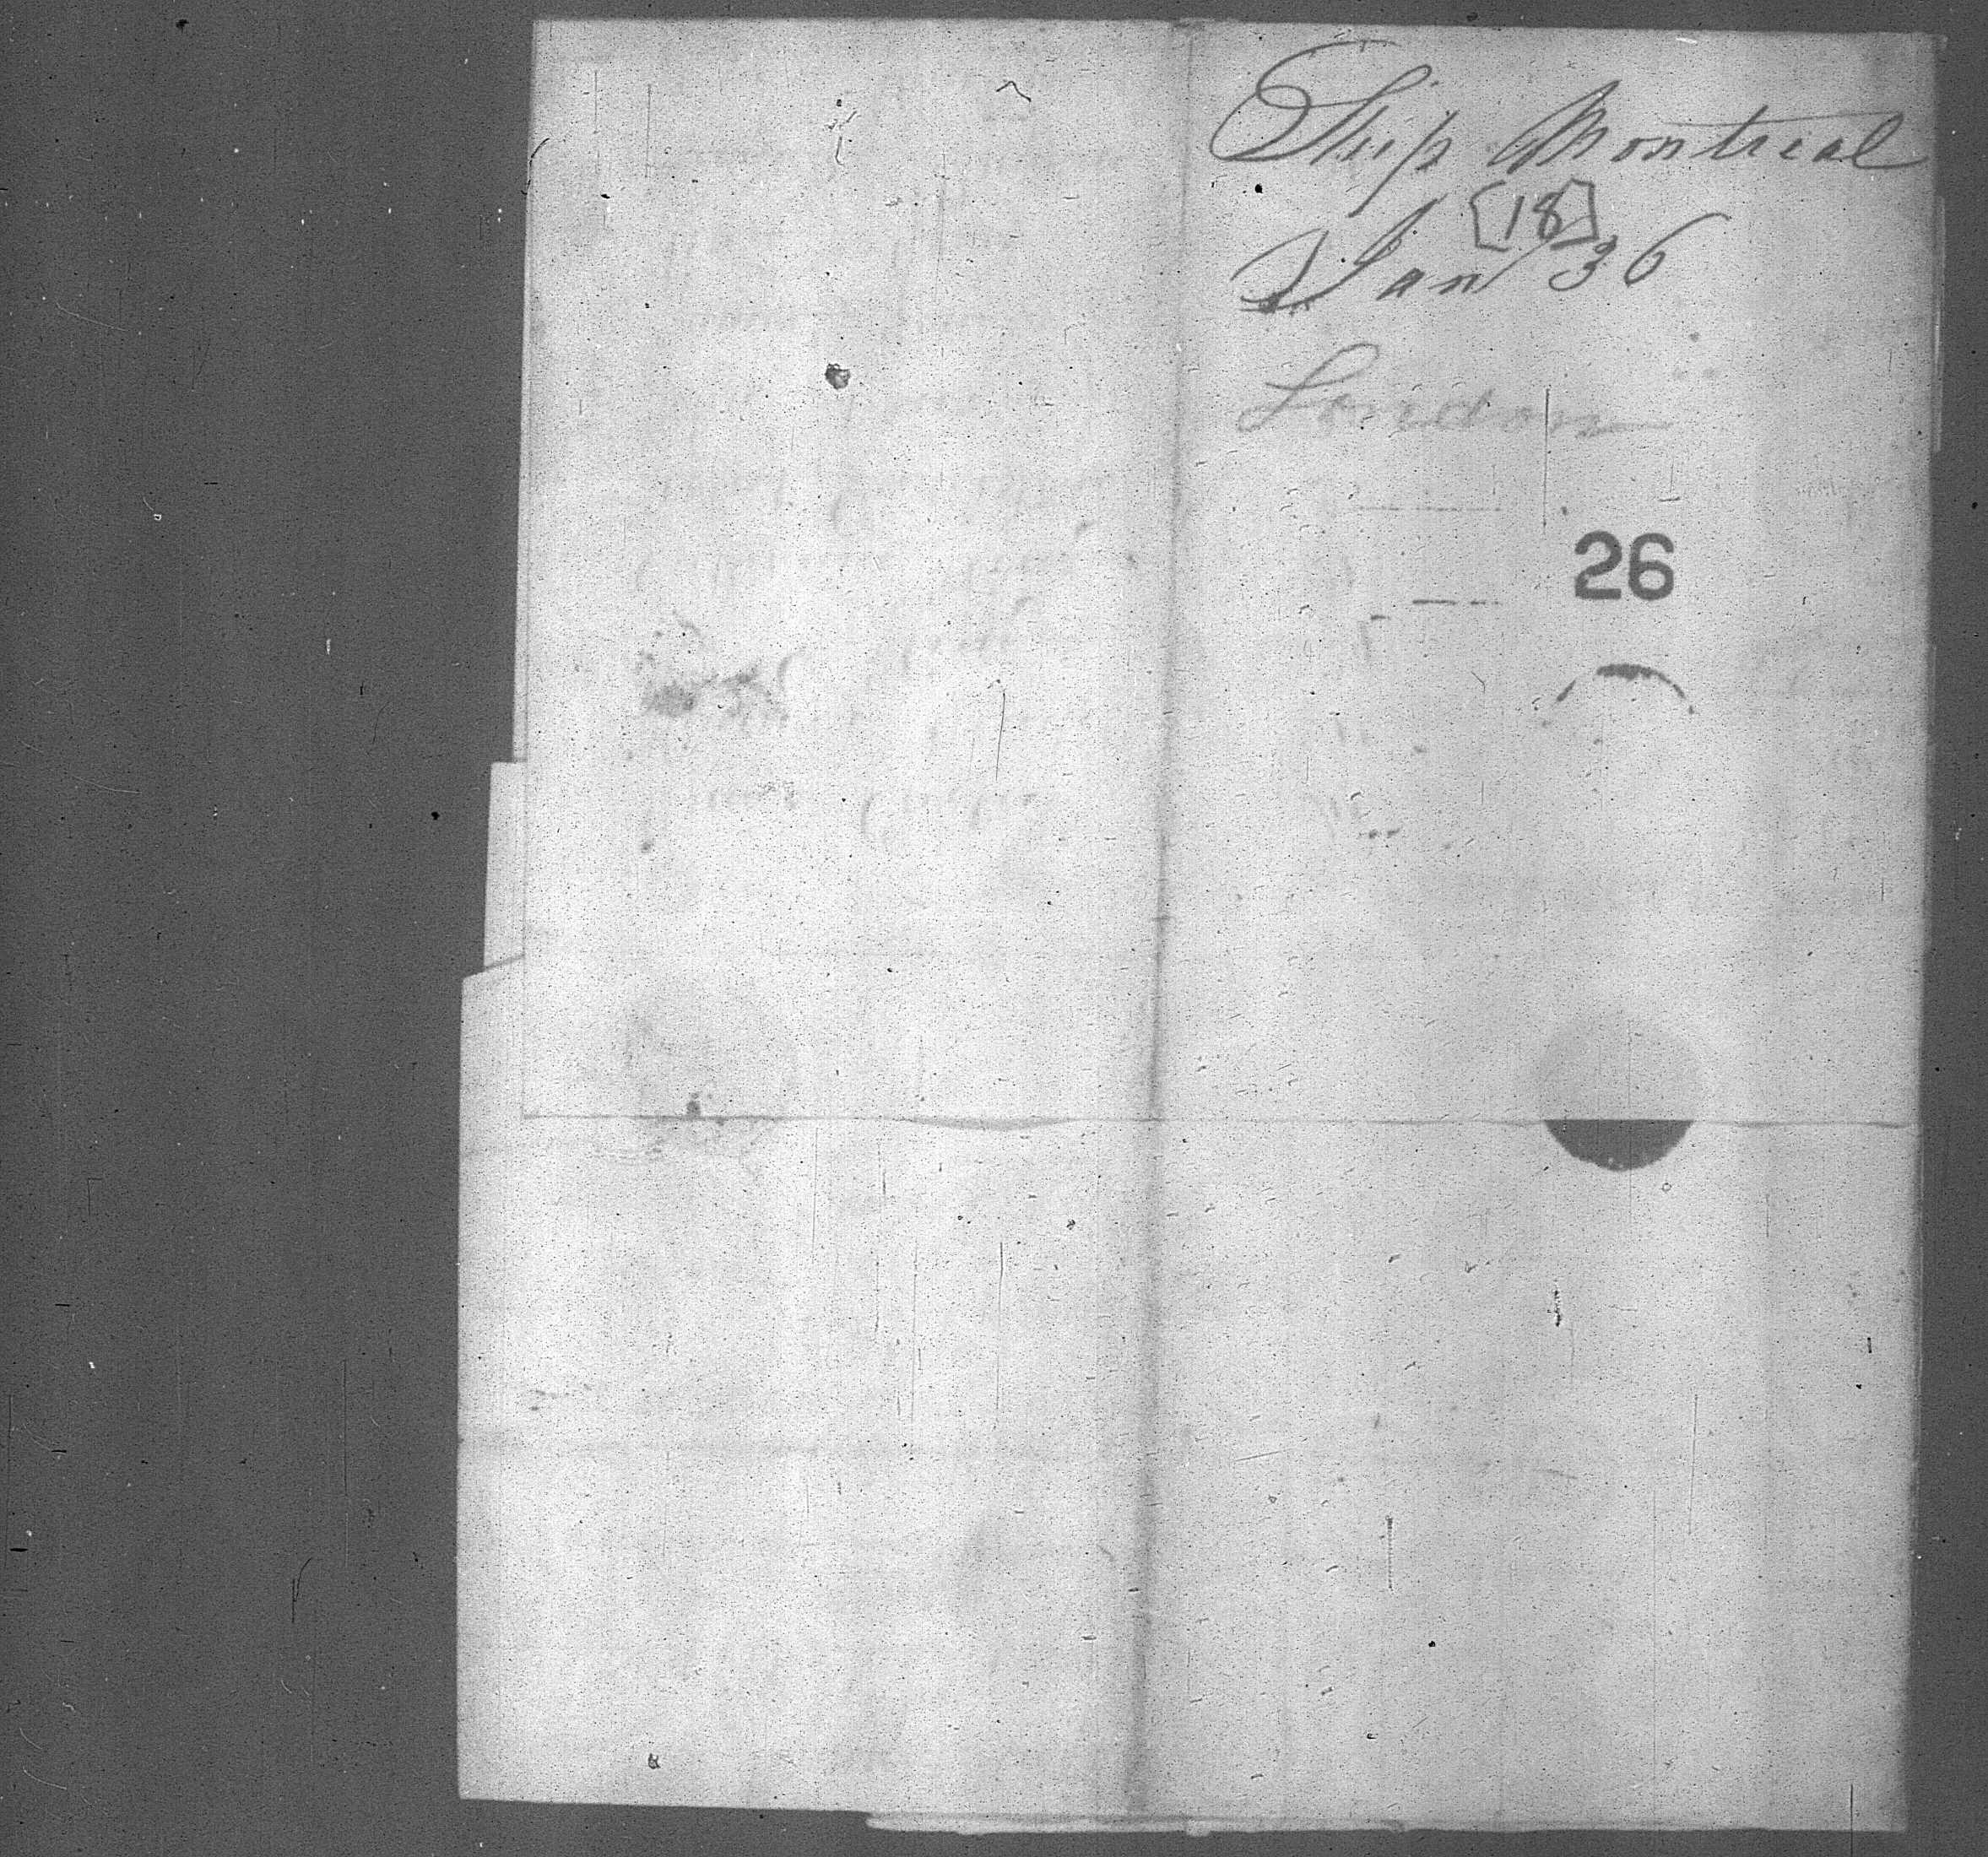 Ship Montreal
[18]
Jan 36
London
26